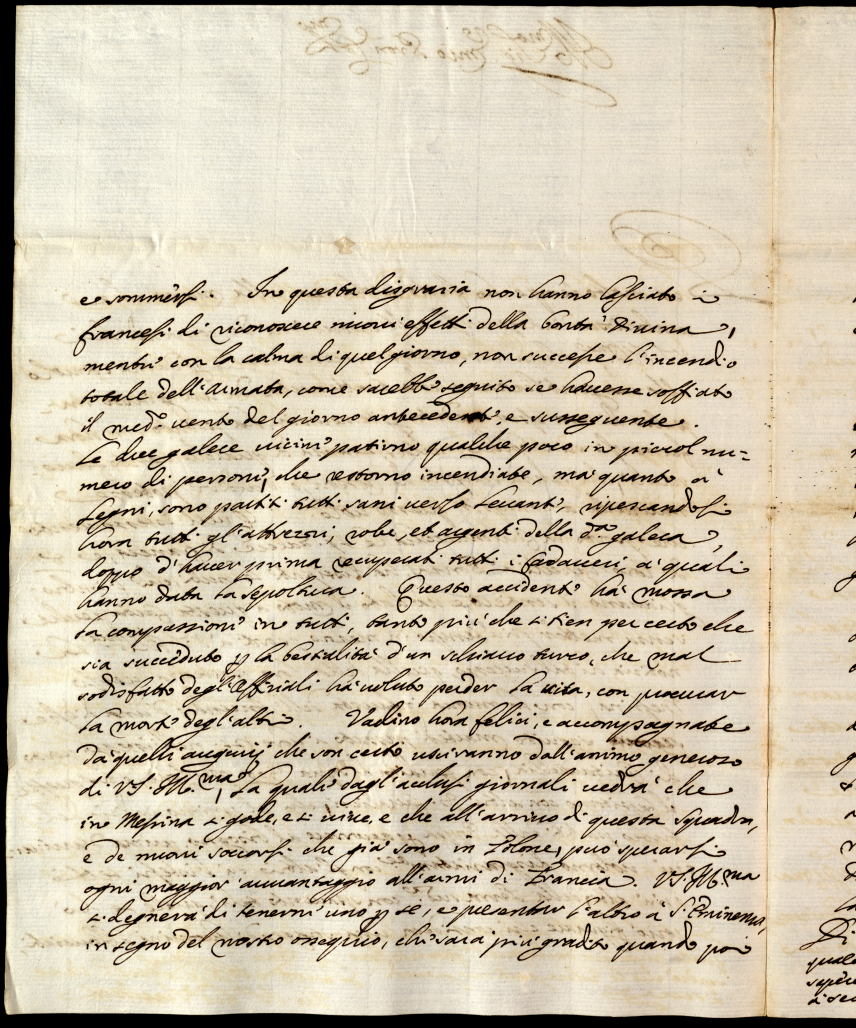 e sommersi. In questa disgrazia non hanno lasciato i
francesi di riconoscere nuovi effetti della bontà Divina,
mentre con la calma di quel giorno, non successe l'incendio
totale dell'armata, come sarebbe seguito se havesse soffiato
il med.º vento del giorno antecedente, e susseguente.
Le due galere vicine patirno qualche poco in picciol nu=
mero di persone, che restorno incendiate, ma quanto a'
Legni, sono partiti tutti sani verso Levante, ripescandosi
hora tutti gl'attrezzi, robe, et argenti della d.ª galera,
doppo d'haver prima recuperati tutti i Cadaveri, a' quali
hanno data la sepoltura. Questo accidente hà mosso
la compassione in tutti, tanto più che si tien per certo che
sia succeduto p la bestialità d'un schiavo turco, che mal
sodisfatto degl'Offiziali hà voluto perder la vita, con procurar
la morte degl'altri. Vadino hora felici, e accompagnate
da quelli augurij che son certo usciranno dall'animo generoso
di V.S. Ill.ma, la quale dagl'acclusi giornali vedrà che
in Messina si gode, e si vive, e che all'arrivo di questa squadra,
e de nuovi soccorsi che già sono in Tolone, può sperarsi
ogni maggior avvantaggio all'armi di Francia. V.S. Ill.ma
si degnerà di tenerne uno p se, e presentar l'altro à S. Eminenza,
in segno del nostro ossequio, che sarà più gradito quando poi